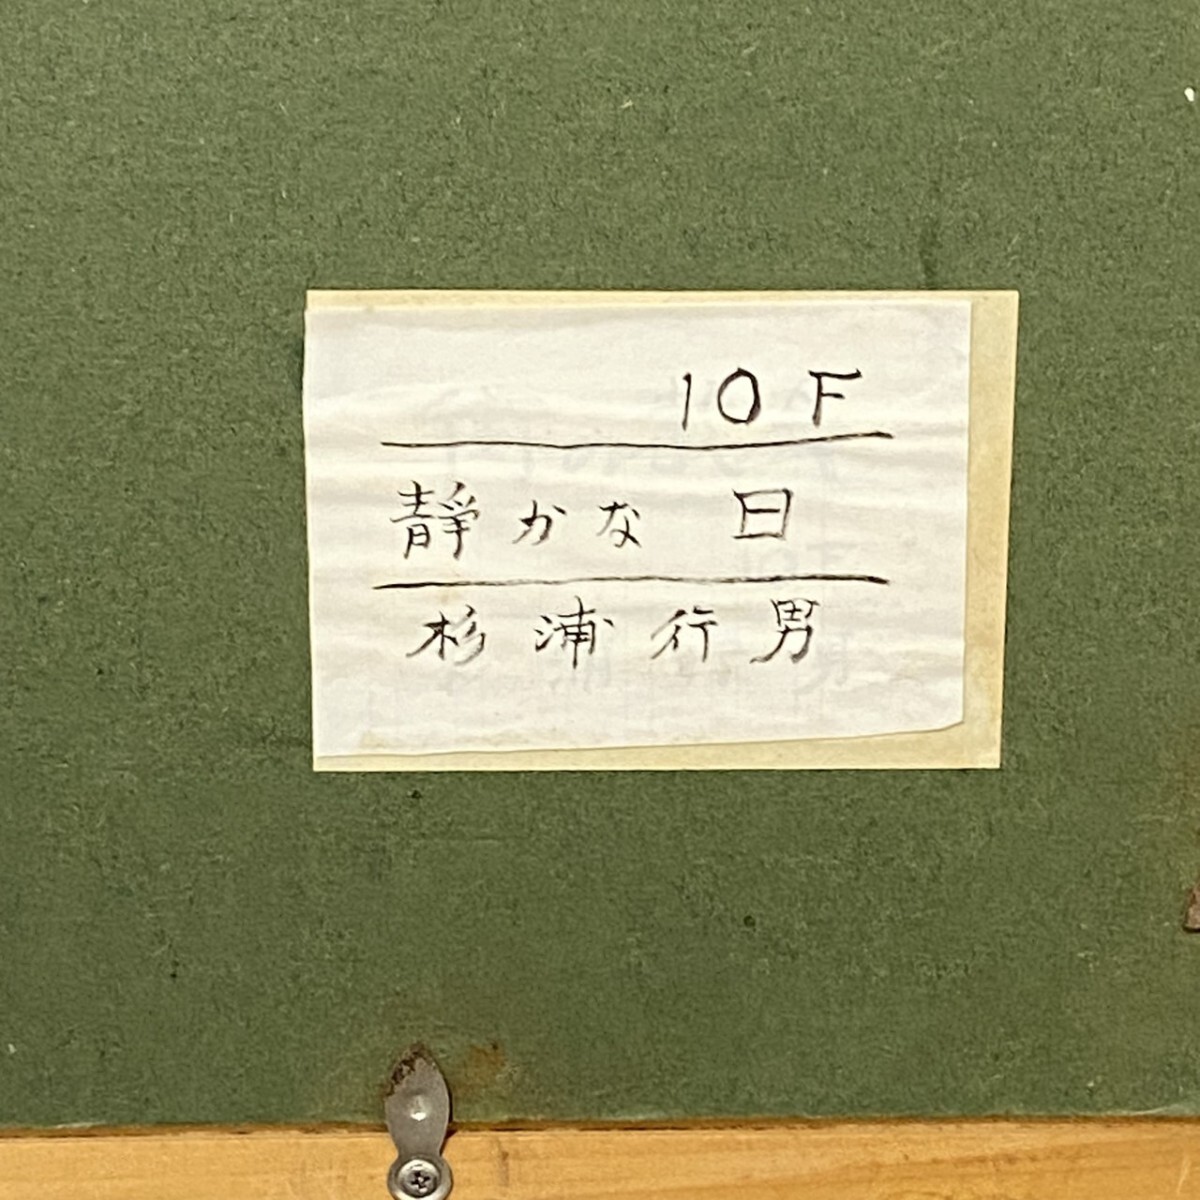 10F
静かな 日
杉浦行男